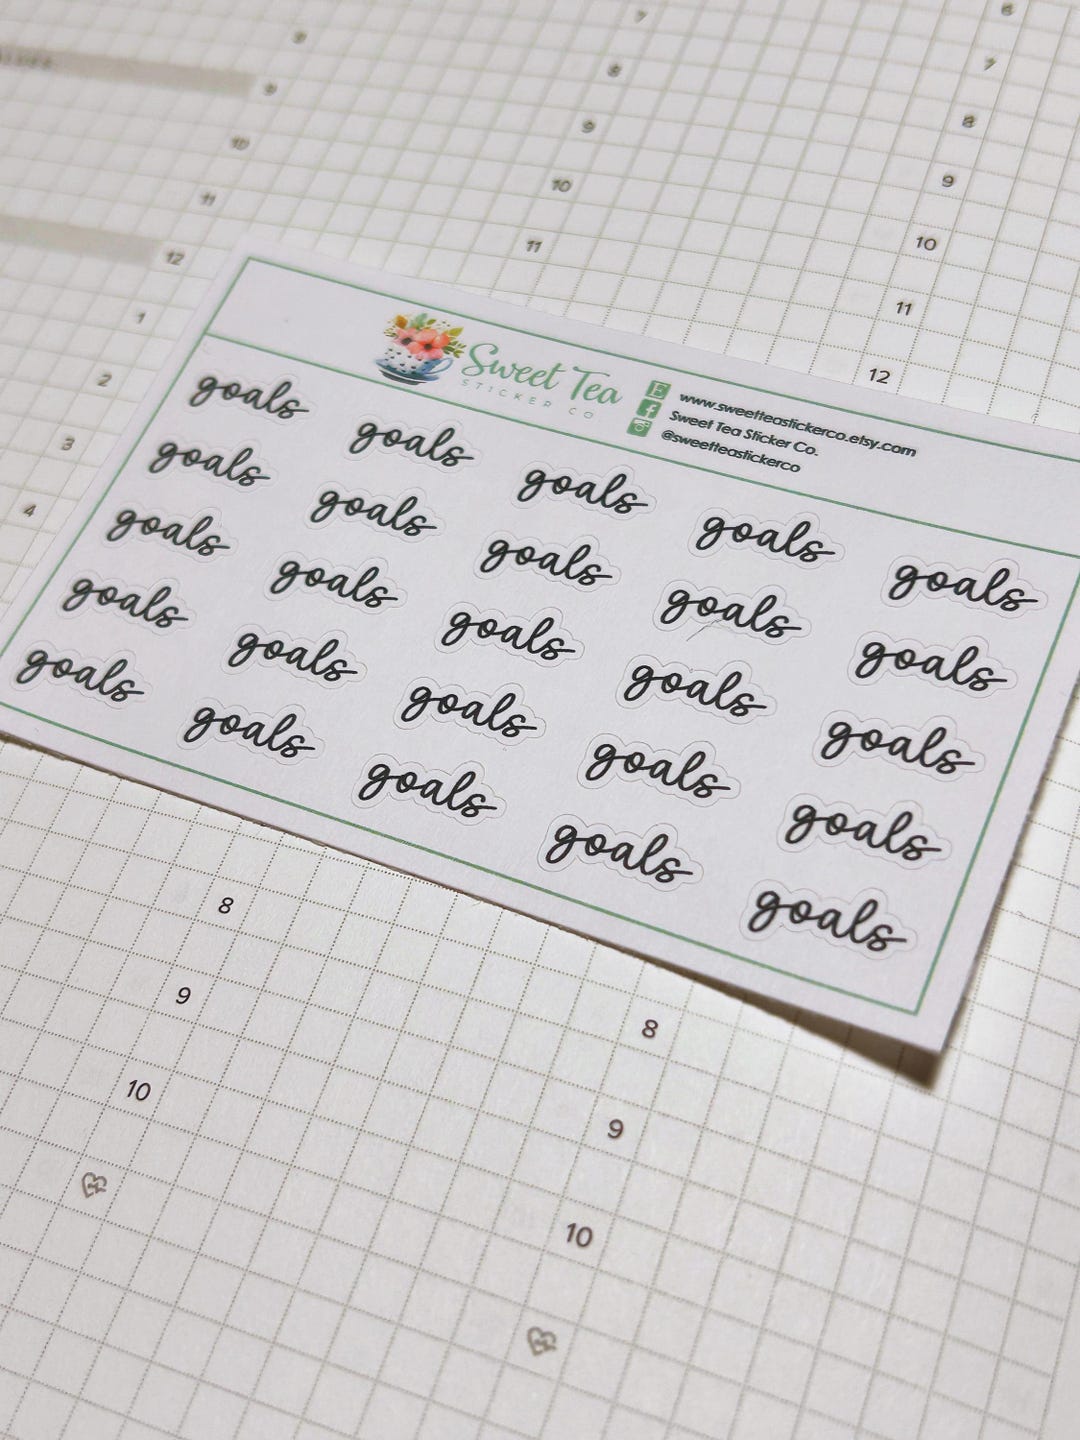 6
7
8
9
10
11
12
1
2
3
4
7
8
9
10
11
6
7
8
9
10
11
12
Sweet Tea
STICKER CO
www.sweetteastickerco.etsy.com
Sweet Tea Sticker Co.
@sweetteastickerco
goals goals goals goals goals
goals goals goals goals goals
goals goals goals goals goals
goals goals goals goals goals
goals goals goals goals goals
8
9
10
8
9
10